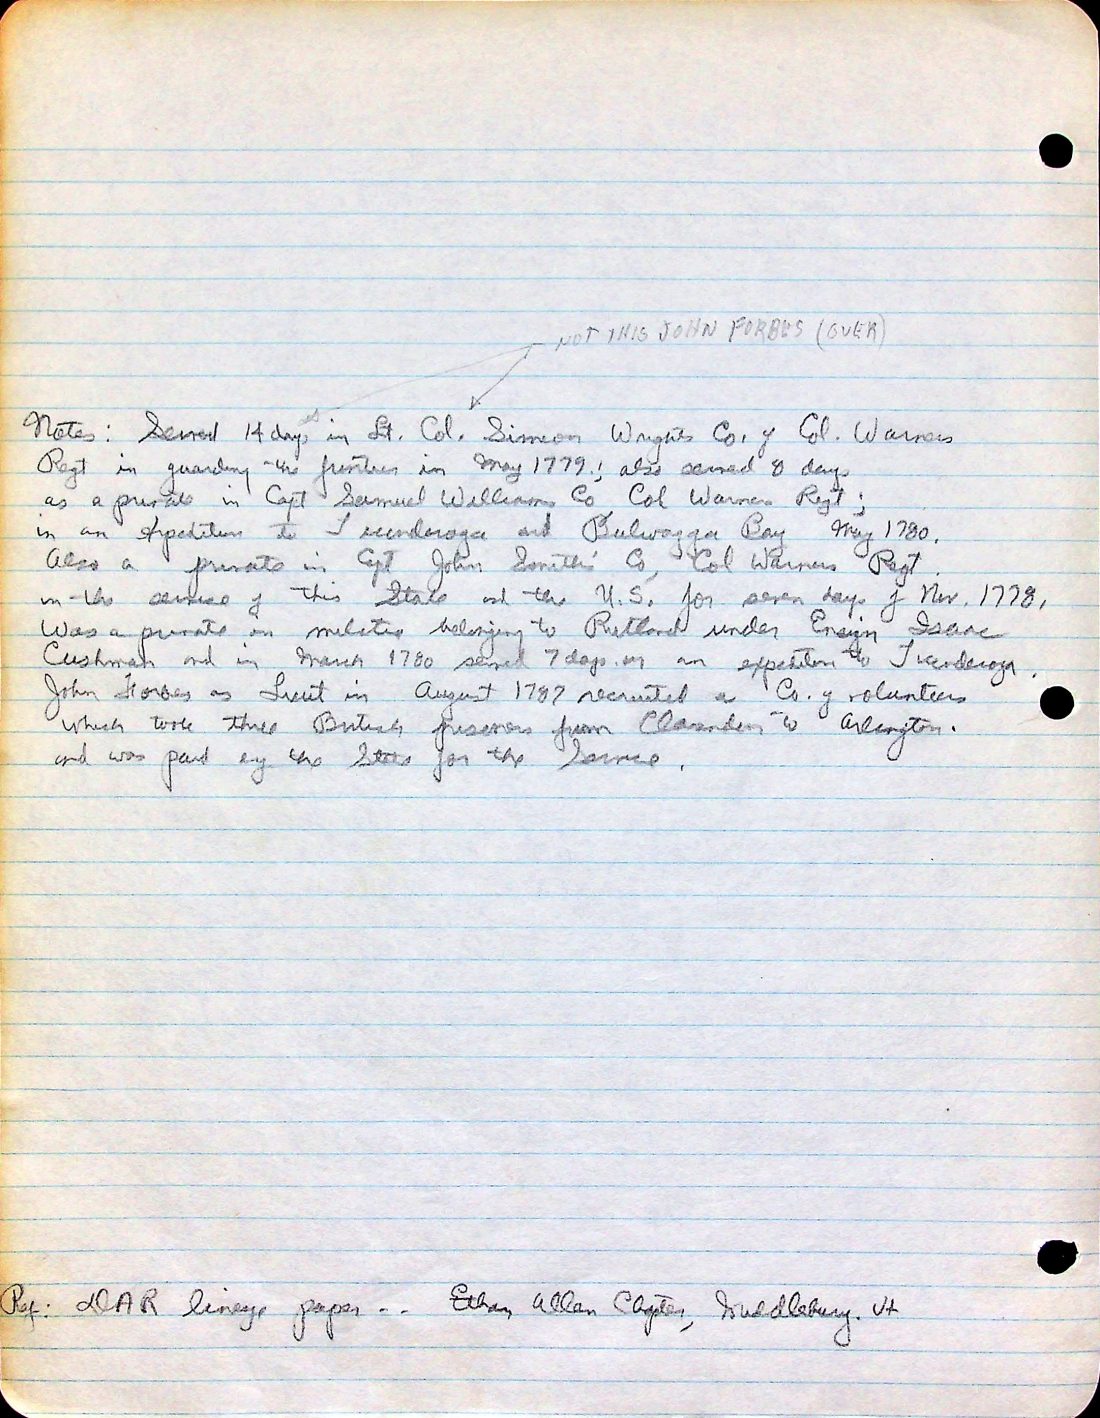 NOT THIS JOHN FORBES (OVER)
Notes: Served 14 days in Lt. Col. Simeon Wrights Co. of Col. Warners
Regt in guarding the frontier in May 1779; also served 8 days
as a private in Capt Samuel Williams Co Col Warners Regt;
in an expedition to Ticonderoga and Bulwagga Bay May 1780.
Also a private in Cpt John Smiths' Co, Col Warners Regt.
in the service of this State and the U.S. for seven days of Nov. 1778.
Was a private in militia belonging to Rutland under Ensign Isaac
Cushman and in March 1780 served 7 days in an expedition to Ticonderoga.
John Forbes as Lieut in August 1787 recruited a Co. of volunteers
which took three British prisoners from Clarendon to Arlington.
and was paid by the State for the Service.
Ref: DAR lineage paper -- Ethan Allen Chapter, Middlebury. Vt